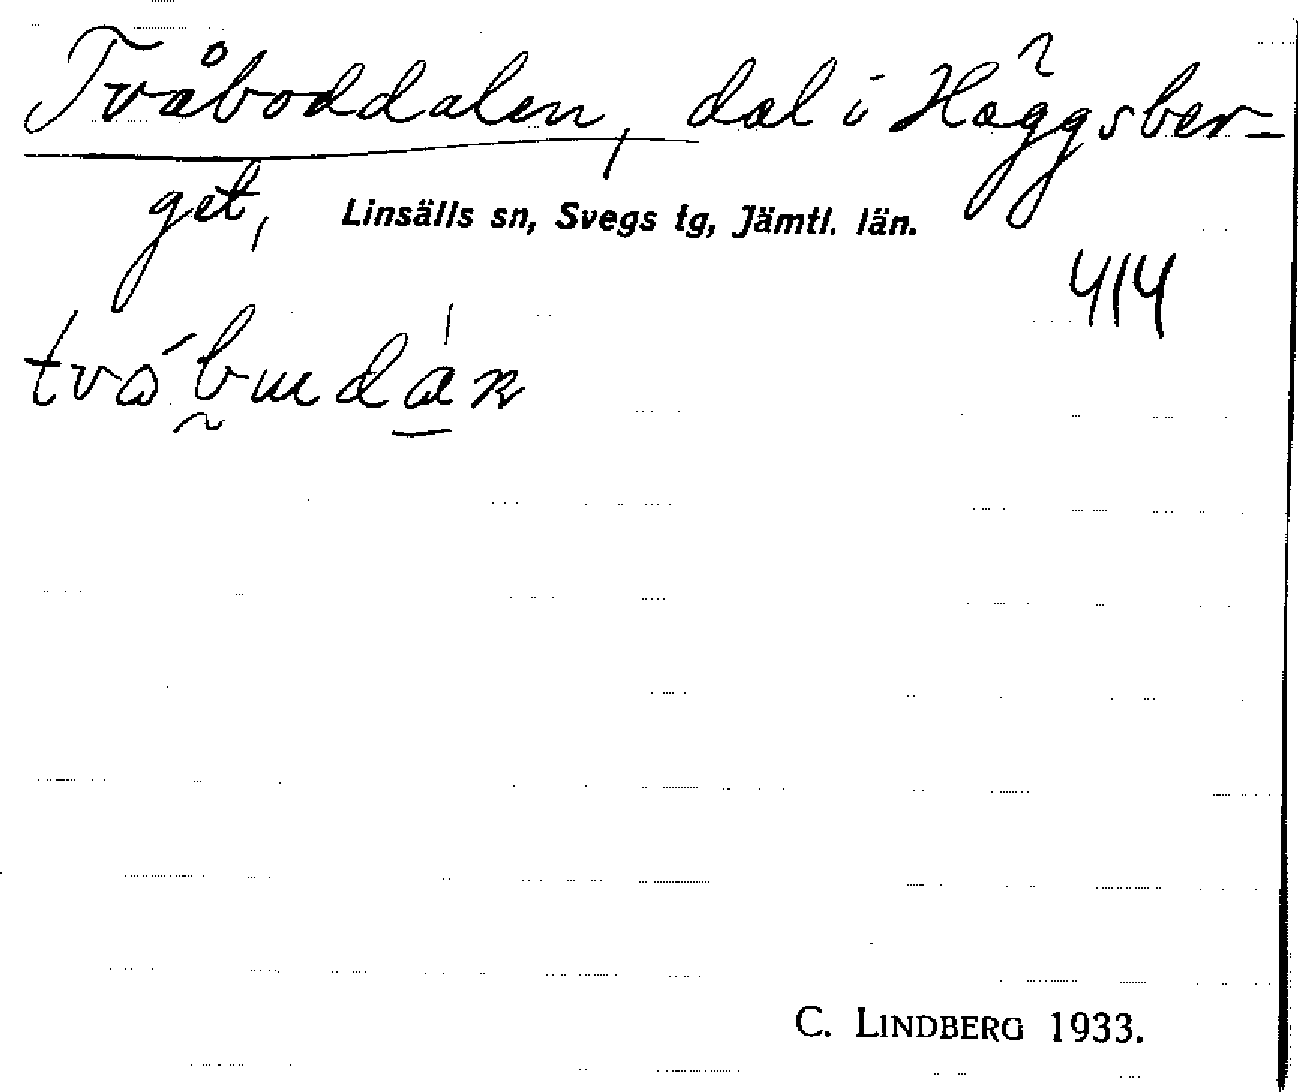 Tvåboddalen, dal i Häggsber-
get,
Linsälls sn, Svegs tg, Jämtl. län.
414
C. LINDBERG 1933.